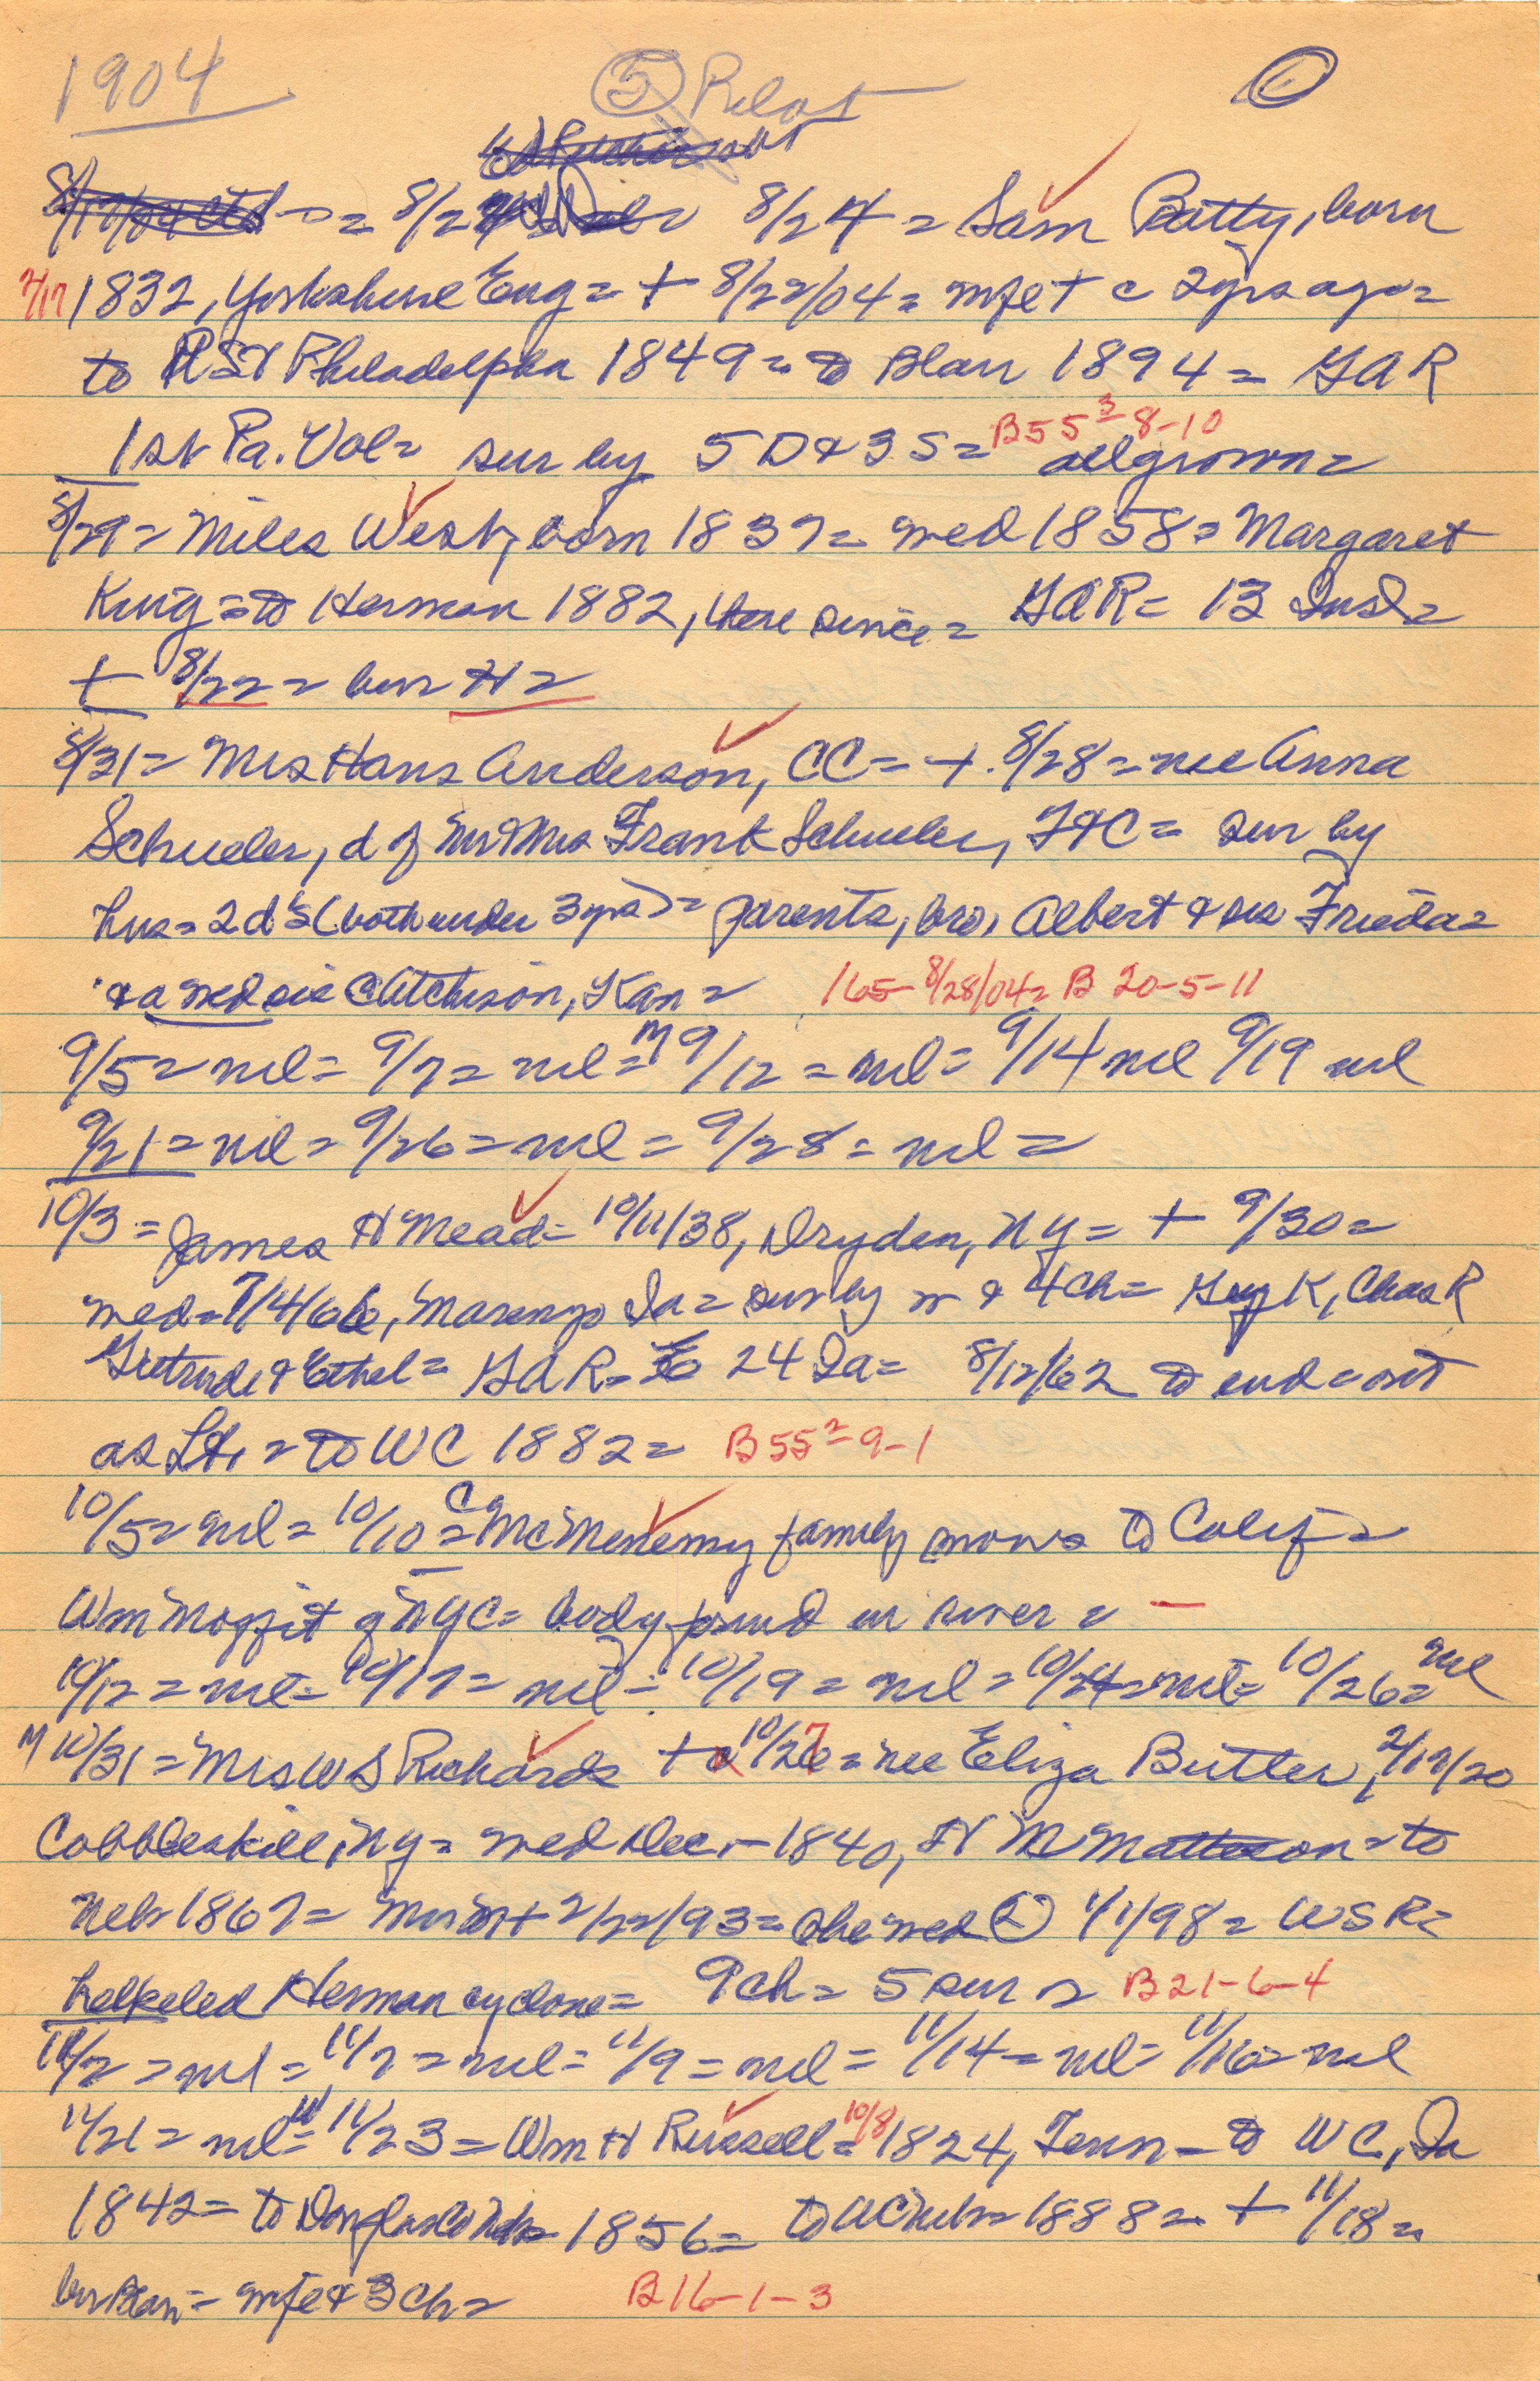 1904 (5) Pilot
= 8/22 8/24 = Sam Batty, born
2/17 1832, Yorkshire Eng = + 8/22/04 = wife + c 2 yrs ago =
to US & Philadelphia 1849 = to Blair 1894 = GAR
1st Pa. Vol = sur by 5 D & 3 S = all grown = B55³-8-10
8/29 = Miles West, born 1837 = wed 1858 = Margaret
King = to Herman 1882, there since = GAR = 13 Ind =
+ 8/22 = bur H =
8/31 = Mrs Hans Anderson, CC = +. 8/28 = nee Anna
Schueler, d of Mr & Mrs Frank Schueler, FtC = sur by
hus = 2 d's (both under 3 yrs) = parents, bro, Albert & sis Frieda =
& a wed sis @ Atchison, Kan = 165 - 8/28/04 = B 20-5-11
9/5 = nil = 9/7 = nil = M 9/12 = nil = 9/14 nil 9/19 nil
9/21 = nil = 9/26 = nil = 9/28 = nil =
10/3 = James H Mead = 10/11/38, Dryden, NY = + 9/30 =
wed = 7/4/66, Marengo Ia = sur by w & 4 ch = Guy K, Chas R
Gertrude & Ethel = GAR = 24 Ia = 8/12/62 to end = out
as Lt. = to WC 1882 = B55²-9-1
10/5 = nil = 10/10 = C McMenemy family moves to Calif =
Wm Moffit of NYC = body found in river = -
10/12 = nil = 10/17 = nil = 10/19 = nil = 10/24 = nil = 10/26 = nil
M 10/31 = Mrs W S Richards + 10/27 = nee Eliza Butler, 2/19/20
Cobbleskill, NY = wed Dec, - 1840, H M Matteson = to
Neb 1867 = Mr M + 2/22/93 = she wed (2) 1/1/98 = WSR =
Herman cyclone = 9 ch = 5 sur = B21-6-4
11/2 = nil = 11/7 = nil = 11/9 = nil = 11/14 = nil = 11/16 = nil
11/21 = nil = 11/23 = Wm H Russell = 10/8 1824, Tenn - to WC, Ia
1842 = to Douglas Co Neb = 1856 = to WC Neb = 1888 = + 11/18 =
bur Blair = wife & 3 ch = B16-1-3